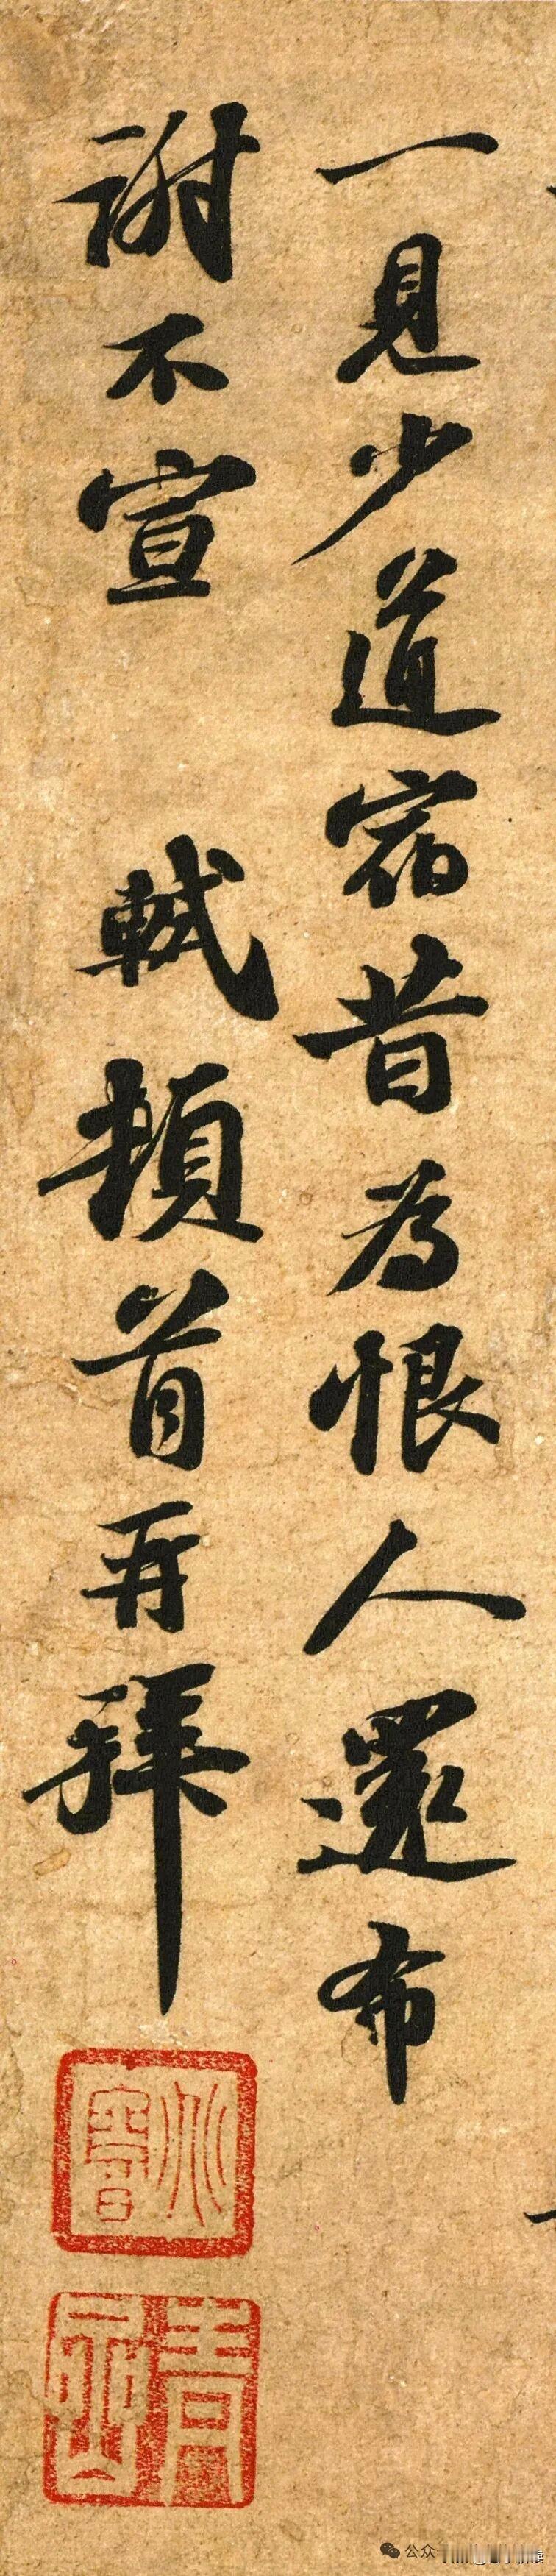 一見少道宿昔為恨人還布
謝不宣 軾頓首再拜
公众